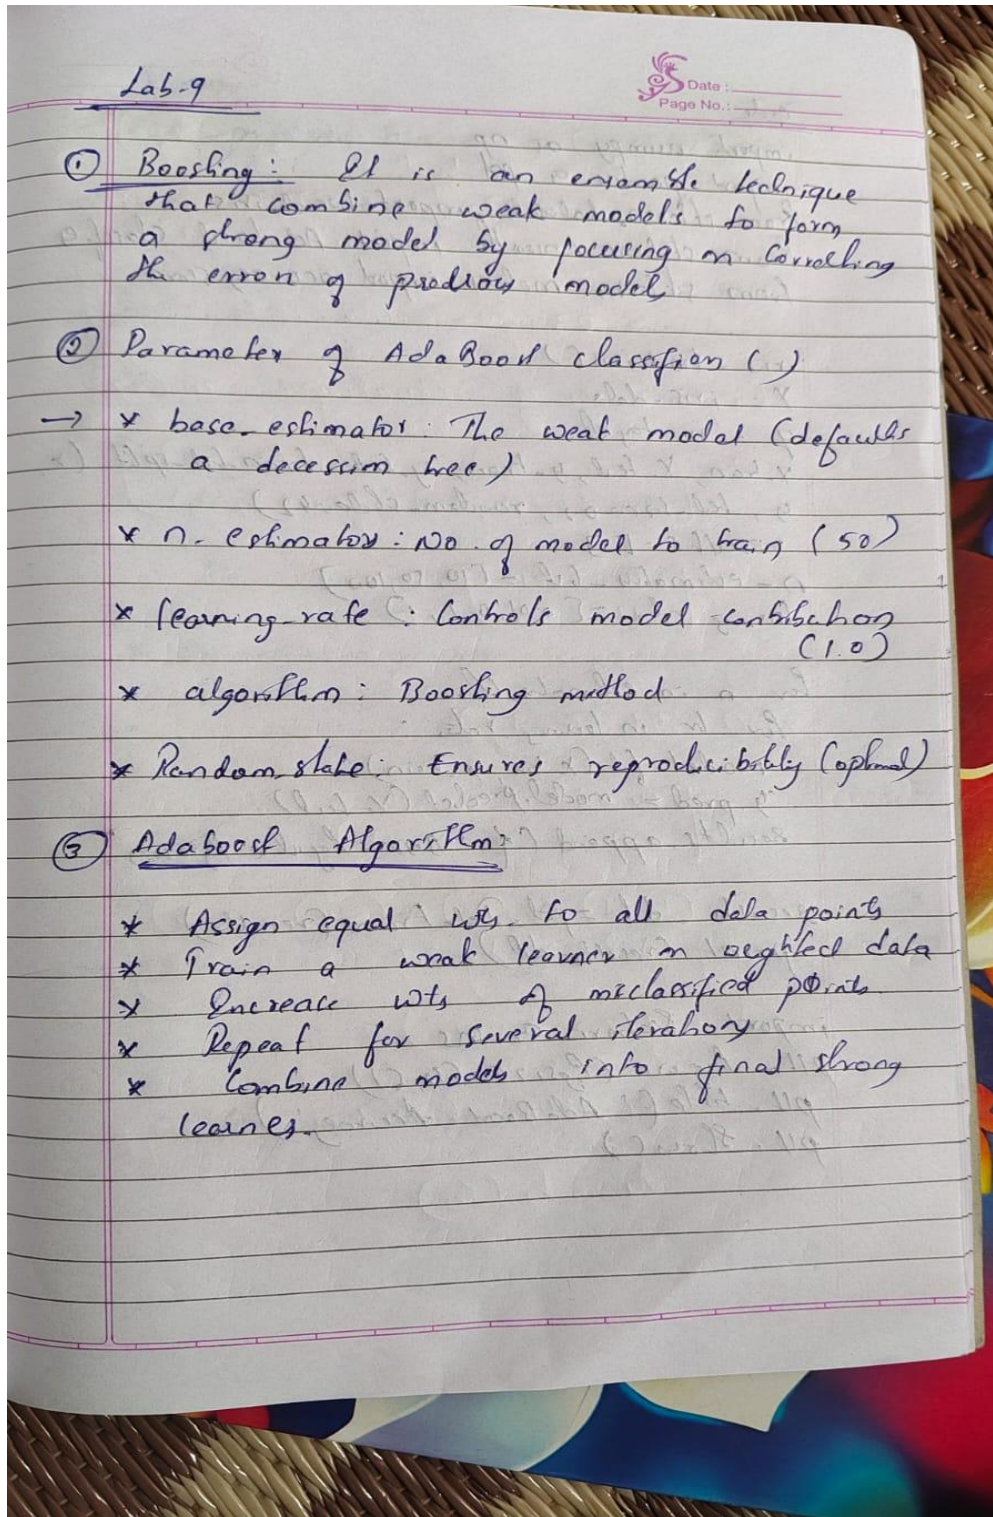 Lab-9
Date :
Page No.:
① Boosting : It is an ensamble technique
that combine weak models to form
a strong model by focusing on Correcting
the error of model
② Parameter of AdaBoost classifier ( )
→ * base_estimator : The weak model (defaults
a decession tree)
* n_estimators : No. of model to train (50)
* learning_rate : Controls model contribution
(1.0)
* algorithm : Boosting method
* Random_state : Ensures reproducibility (optional)
③ Adaboost Algorithm :
* Assign equal wts. to all data points
* Train a weak learner on weighted data
* Increase wts of misclassified points
* Repeat for several iterations
* Combine models into final strong
learner.